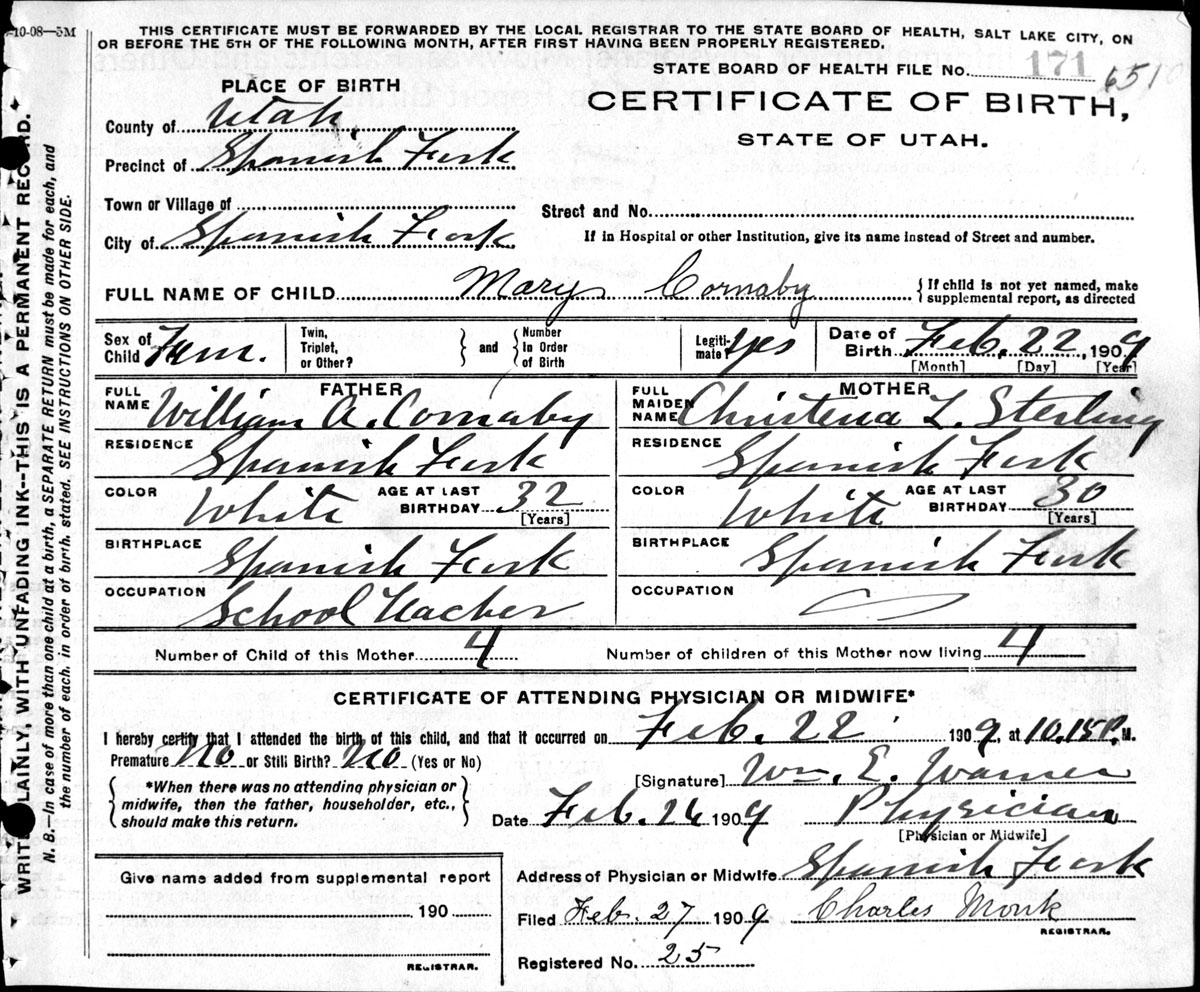 10-08—5M
THIS CERTIFICATE MUST BE FORWARDED BY THE LOCAL REGISTRAR TO THE STATE BOARD OF HEALTH, SALT LAKE CITY, ON
OR BEFORE THE 5TH OF THE FOLLOWING MONTH, AFTER FIRST HAVING BEEN PROPERLY REGISTERED.
STATE BOARD OF HEALTH FILE No. 171 6510
PLACE OF BIRTH
CERTIFICATE OF BIRTH,
STATE OF UTAH.
County of Utah
Precinct of Spanish Fork
Town or Village of
Street and No.
City of Spanish Fork
If in Hospital or other Institution, give its name instead of Street and number.
FULL NAME OF CHILD Mary Cornaby
{ If child is not yet named, make
supplemental report, as directed
Sex of Child Fem.
Twin, Triplet, or Other? } and { Number In Order of Birth
Legiti- mate? Yes
Date of Birth Feb. 22, 1909
[Month] [Day] [Year]
FATHER
FULL NAME William A. Cornaby
MOTHER
FULL MAIDEN NAME Christena L. Sterling
RESIDENCE Spanish Fork
RESIDENCE Spanish Fork
COLOR White AGE AT LAST BIRTHDAY 32 [Years]
COLOR White AGE AT LAST BIRTHDAY 30 [Years]
BIRTHPLACE Spanish Fork
BIRTHPLACE Spanish Fork
OCCUPATION School Teacher
OCCUPATION
Number of Child of this Mother 4
Number of children of this Mother now living 4
CERTIFICATE OF ATTENDING PHYSICIAN OR MIDWIFE*
I hereby certify that I attended the birth of this child, and that it occurred on Feb. 22 1909, at 10.15 P. M.
Premature No or Still Birth? No (Yes or No)
[Signature] Wm. E. Warner
{ *When there was no attending physician or
midwife, then the father, householder, etc.,
should make this return. }
Date Feb. 26 1909 Physician
[Physician or Midwife]
Address of Physician or Midwife Spanish Fork
Give name added from supplemental report
190
REGISTRAR.
Filed Feb. 27 1909 Charles Monk
REGISTRAR.
Registered No. 25
WRITE PLAINLY, WITH UNFADING INK--THIS IS A PERMANENT RECORD.
N. B.—In case of more than one child at a birth, a SEPARATE RETURN must be made for each, and
the number of each, in order of birth, stated. SEE INSTRUCTIONS ON OTHER SIDE.